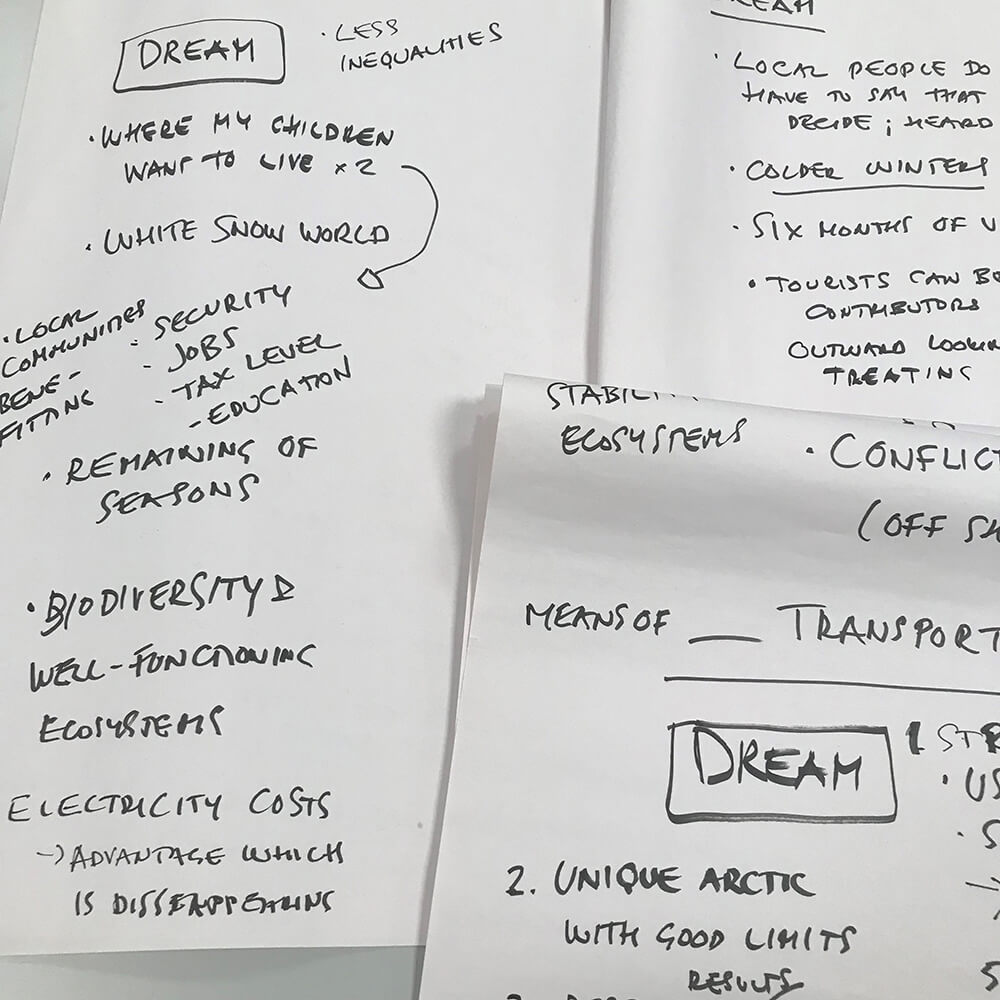 DREAM
· LESS
INEQUALITIES
· WHERE MY CHILDREN
WANT TO LIVE x 2
· WHITE SNOW WORLD
· LOCAL
COMMUNITIES
BENE-
FITTING
· SECURITY
· JOBS
· TAX LEVEL
- EDUCATION
· REMAINING OF
SEASONS
· BIODIVERSITY &
WELL-FUNCTIONING
ECOSYSTEMS
ELECTRICITY COSTS
→ ADVANTAGE WHICH
IS DISSEAPPEARING
DREAM
· LOCAL PEOPLE DO
HAVE TO SAY THAT
DECIDE ; HEARD
· COLDER WINTERS
· SIX MONTHS OF
· TOURISTS CAN BE
CONTRIBUTORS
OUTWARD LOOKIN
TREATING
ECOSYSTEMS
· CONFLICT
(OFF SH
MEANS OF __ TRANSPORT
DREAM
1 ST
· US
· S
2. UNIQUE ARCTIC
WITH GOOD LIMITS
RESULTS